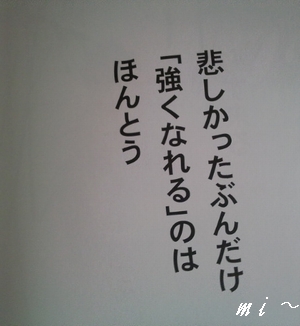 悲しかったぶんだけ
「強くなれる」のは
ほんとう
mi～